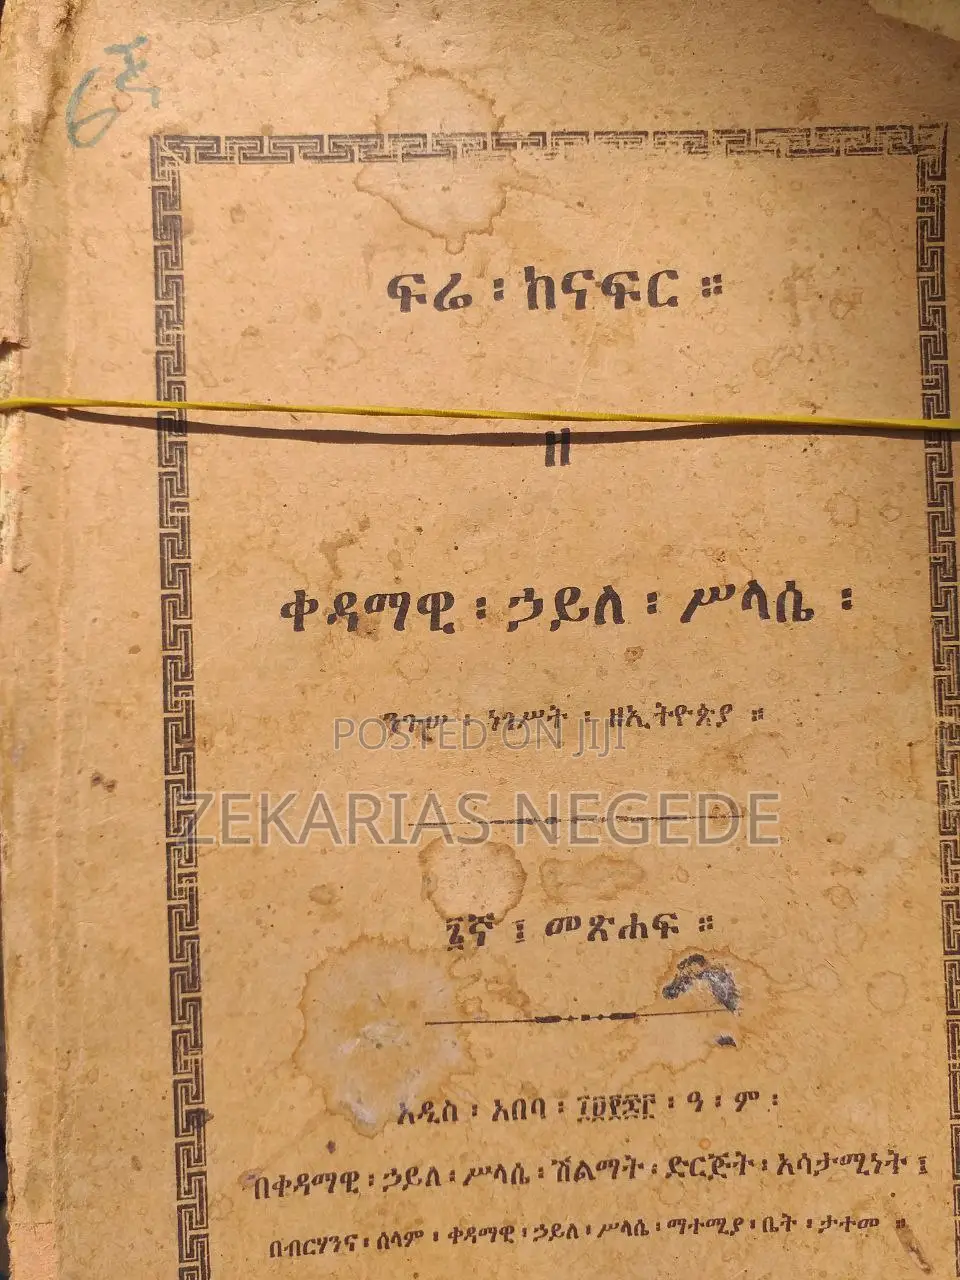 6ኛ
ፍሬ ፡ ከናፍር ።
ዘ
ቀዳማዊ ፡ ኃይለ ፡ ሥላሴ ፡
ንጉሠ ፡ ነገሥት ፡ ዘኢትዮጵያ ።
POSTED ON JIJI
ZEKARIAS NEGEDE
፮ኛ ፤ መጽሐፍ ።
አዲስ ፡ አበባ ፡ ፡ ዓ ፡ ም ፡
በቀዳማዊ ፡ ኃይለ ፡ ሥላሴ ፡ ሽልማት ፡ ድርጅት ፡ አሳታሚነት ፤
በብርሃንና ፡ ሰላም ፡ ቀዳማዊ ፡ ኃይለ ፡ ሥላሴ ፡ ማተሚያ ፡ ቤት ፡ ታተመ ።